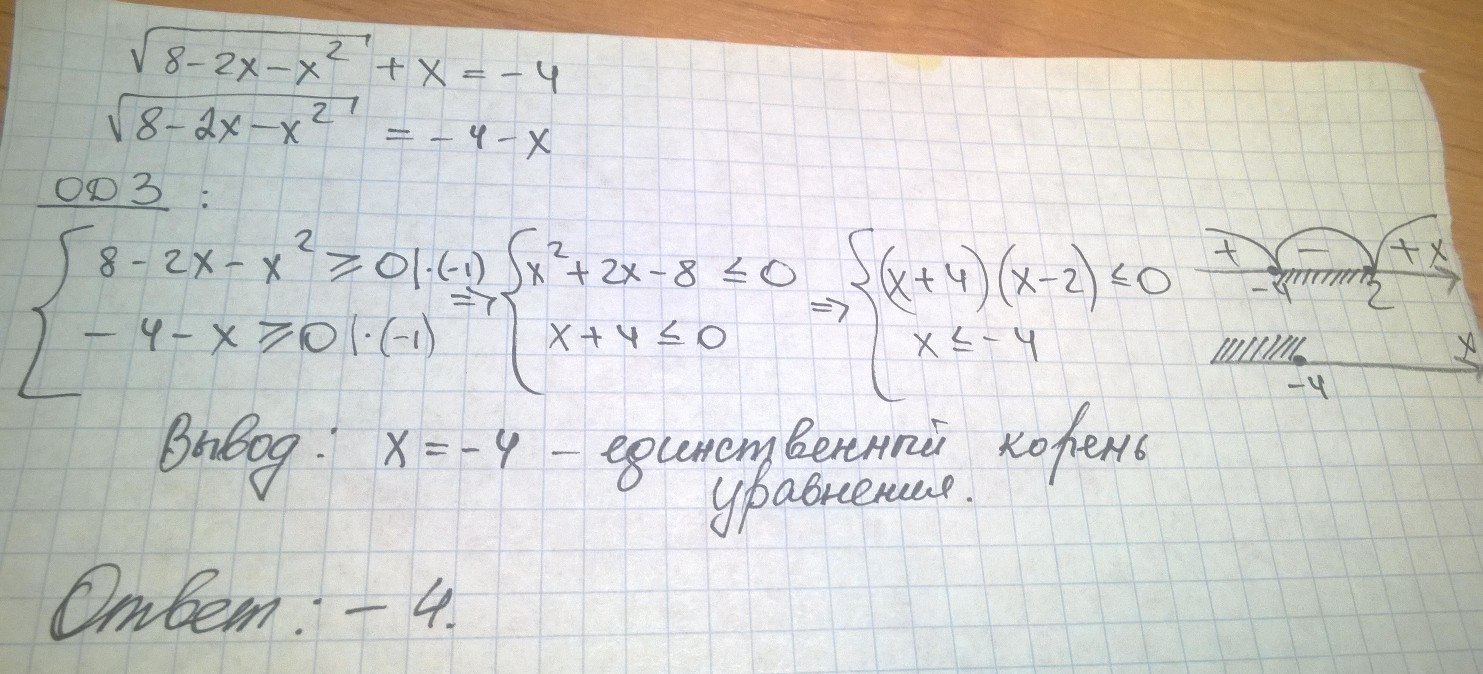 √(8-2x-x²) + x = -4
√(8-2x-x²) = -4-x
ОДЗ :
{ 8-2x-x² ≥ 0 |·(-1) => { x²+2x-8 ≤ 0 => { (x+4)(x-2) ≤ 0 + - + x -4 2
-4-x ≥ 0 |·(-1) x+4 ≤ 0 x ≤ -4 x -4
Вывод: x = -4 – единственный корень
уравнения.
Ответ: -4.